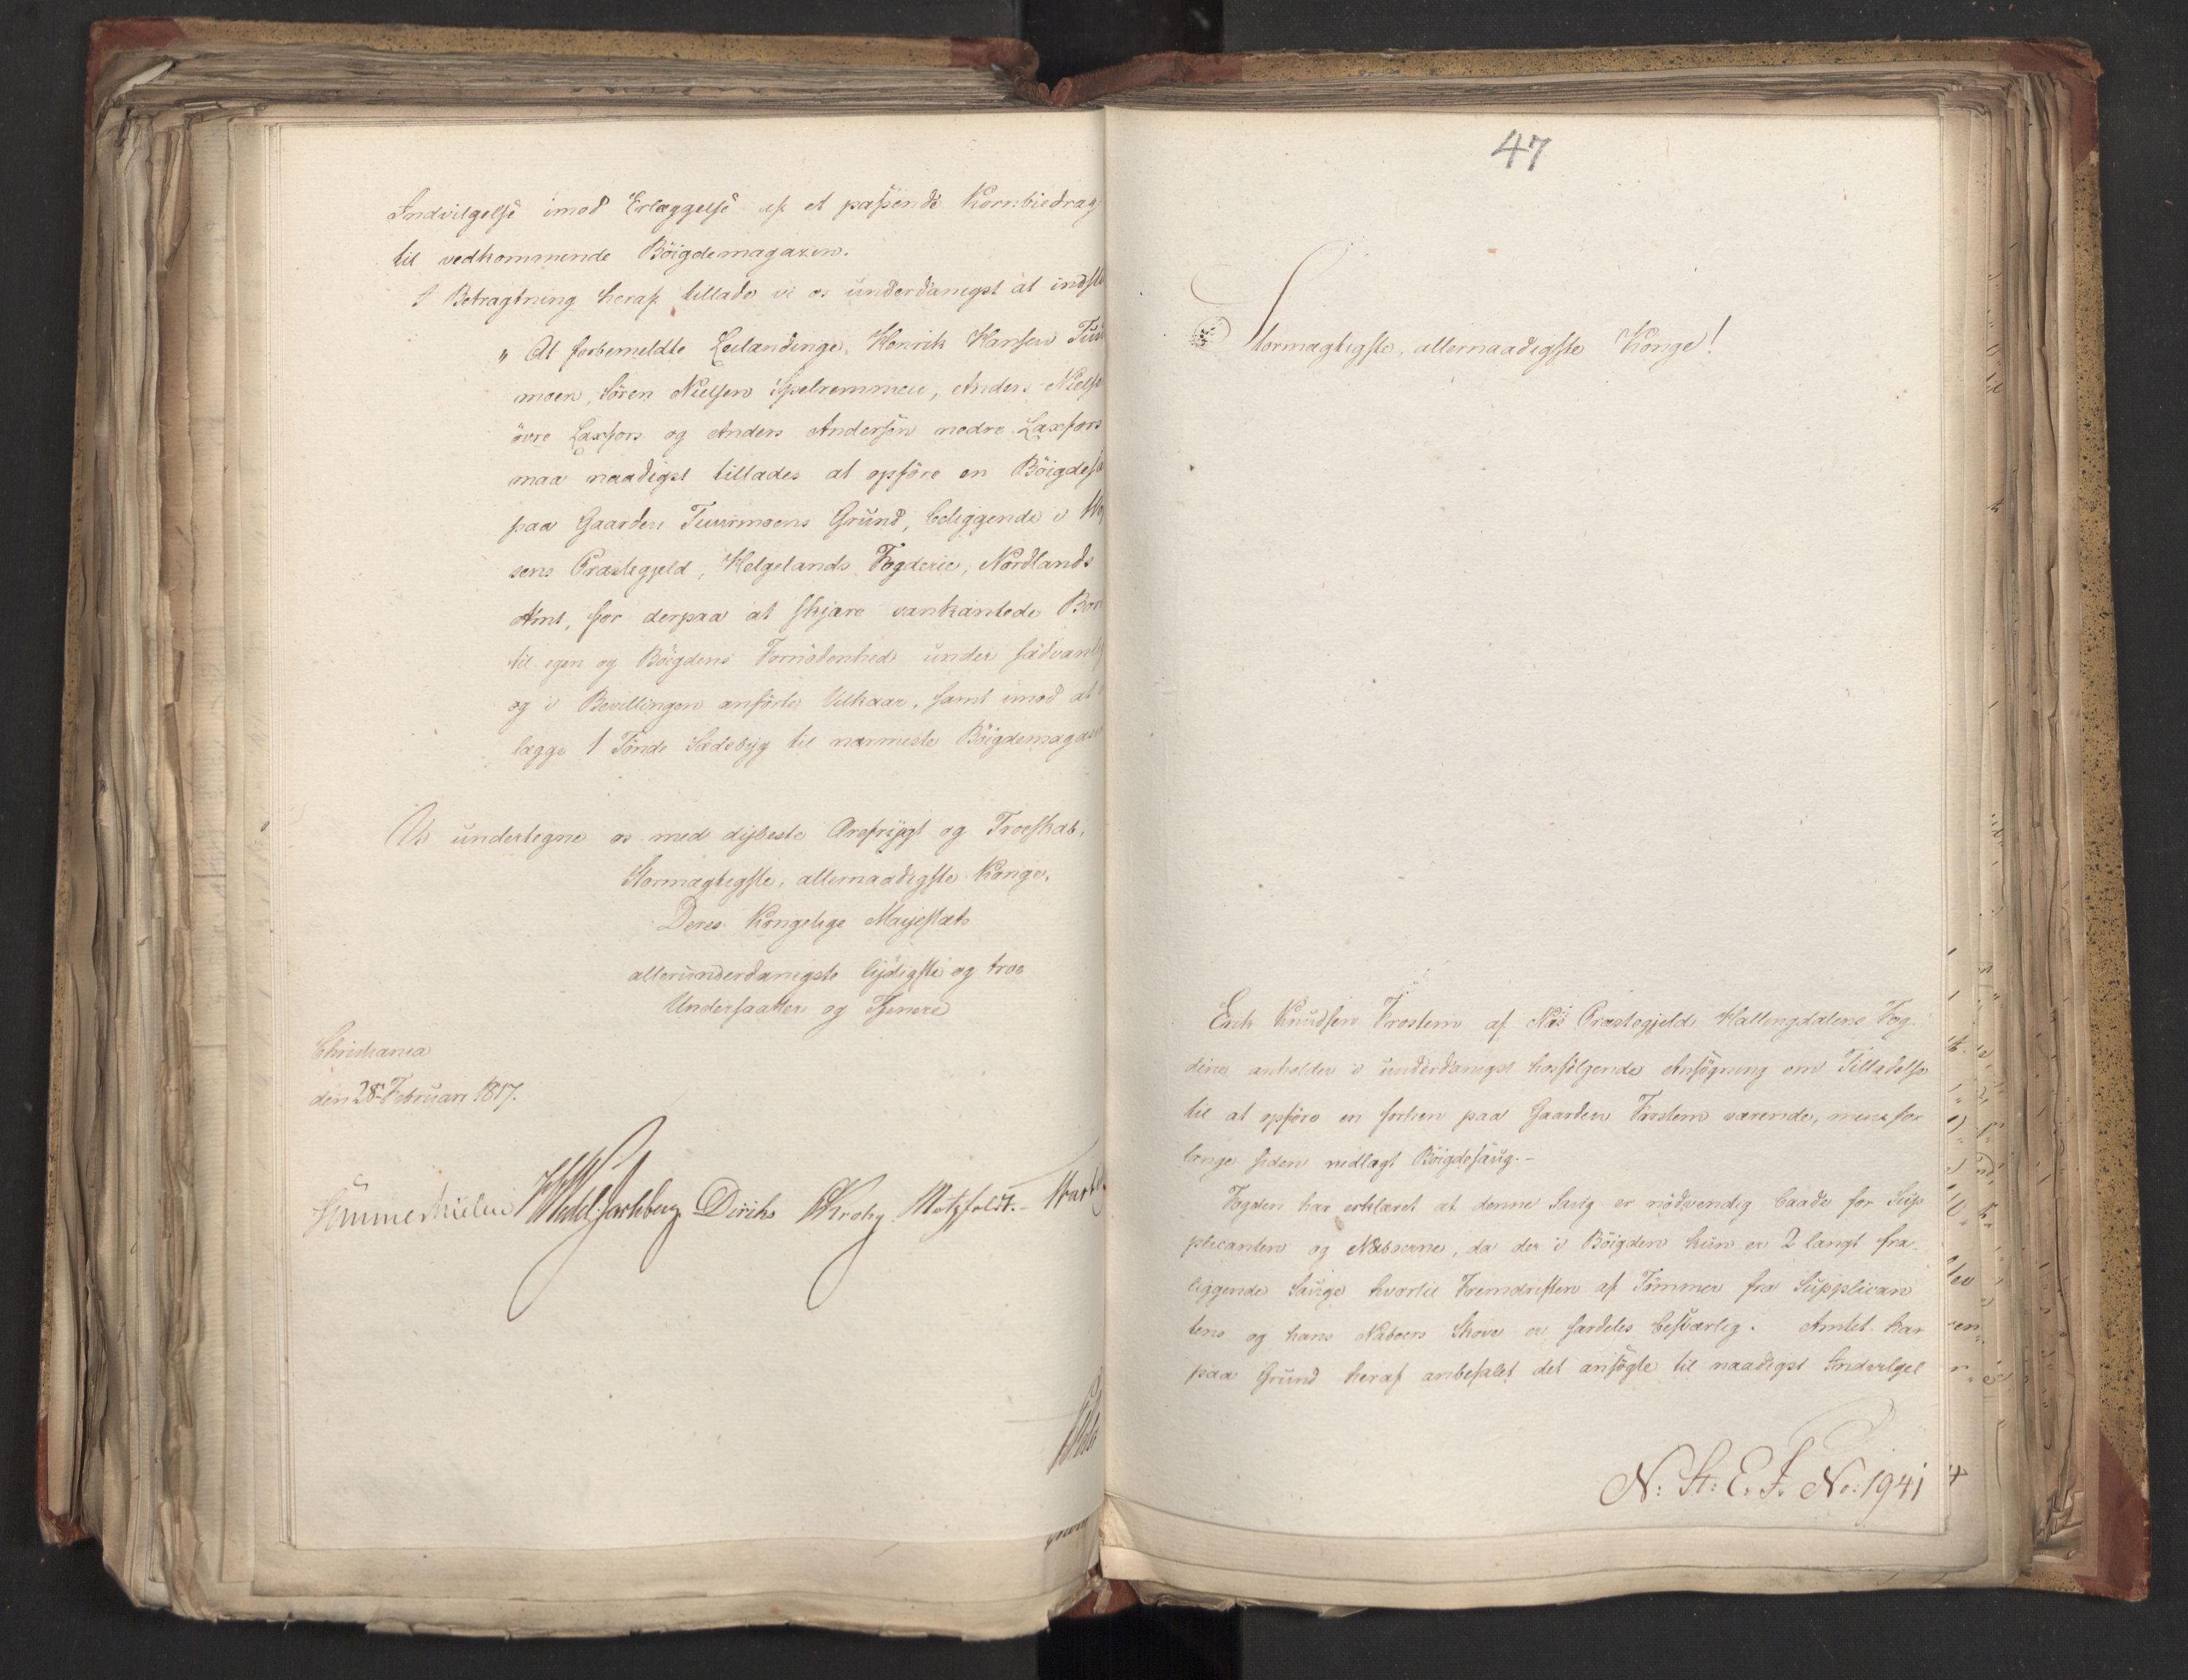 Indvilgelse imod Erlæggelse af et passende Kornbiedrag
til vedkommende Böigdemagazin.
I Betragtning heraf tillade vi os underdanigst at indstil
" At forbemeldte Leilændinge, Henrik Hansen Tuur
moen, Sören Nielsen Spelremmen, Anders Nielse
övre Laxfors og Anders Andersen nedre Laxfors
maa naadigst tillades at opföre en Böigdesa
paa Gaarden Tuurmoens Grund, beliggende i
sens Præstegjeld, Helgelands Fogderie, Nordlands
Amt, for derpaa at skjære vankantede Bor
til egen og Böigdens Fornödenhed under sædvanli
og i Bevillingen anförte Vilkaar, samt imod at
lægge 1 Tönde Sædebyg til nærmeste Böigdemagasi
Vi undertegne os med dybeste Ærefrygt og Troeskab,
Stormægtigste, allernaadigste Konge,
Deres Kongelige Majestæts
allerunderdanigste lydigste og troe
Undersaatter og Tjenere
Christiania
den 28 Februari 1817.
Sommerhielm Wedel-Jarlsberg Diriks Krohg Motzfeldt.-
47
Stormægtigste, allernaadigste Konge!
Erik Knudsen Trostem af Næs Præstegjeld Hallingdalens Fog-
derie anholder i underdanigst hosfölgende Ansögning om Tilladelse
til at opföre en forhen paa Gaarden Trostem værende, men for
længe siden nedlagt Böigdesaug.-
Fogden har erklæret at denne Saug er nödvendig baade for Sup
plicanten og Naboerne, da der i Böigden kun er 2 langt fra-
liggende Sauge hvortil Fremdriften af Tömmer fra Supplican
tens og hans Naboers Skove er særdeles besværlig. Amtet har
paa Grund heraf anbefalet det ansögte til naadigst Indvilgel
N: St: E. F. No: 1941